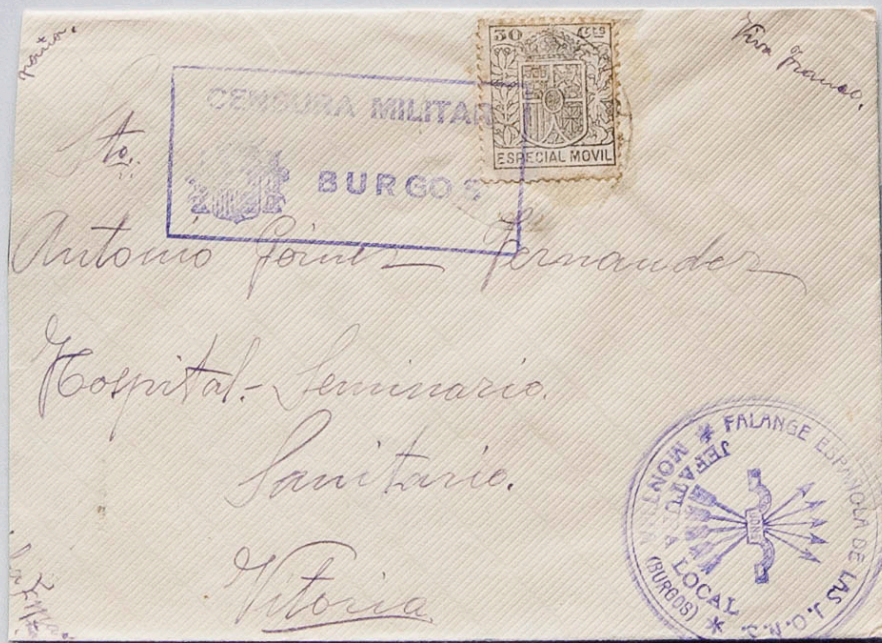 Viva Franco.
50 Cts
ESPECIAL MOVIL
CENSURA MILITAR
BURGOS
Sto.
Antonio Gómez Fernandez
Hospital-Seminario.
Sanitario.
Vitoria
FALANGE ESPAÑOLA DE LAS J.O.N.S.
JEFATURA LOCAL
(BURGOS)